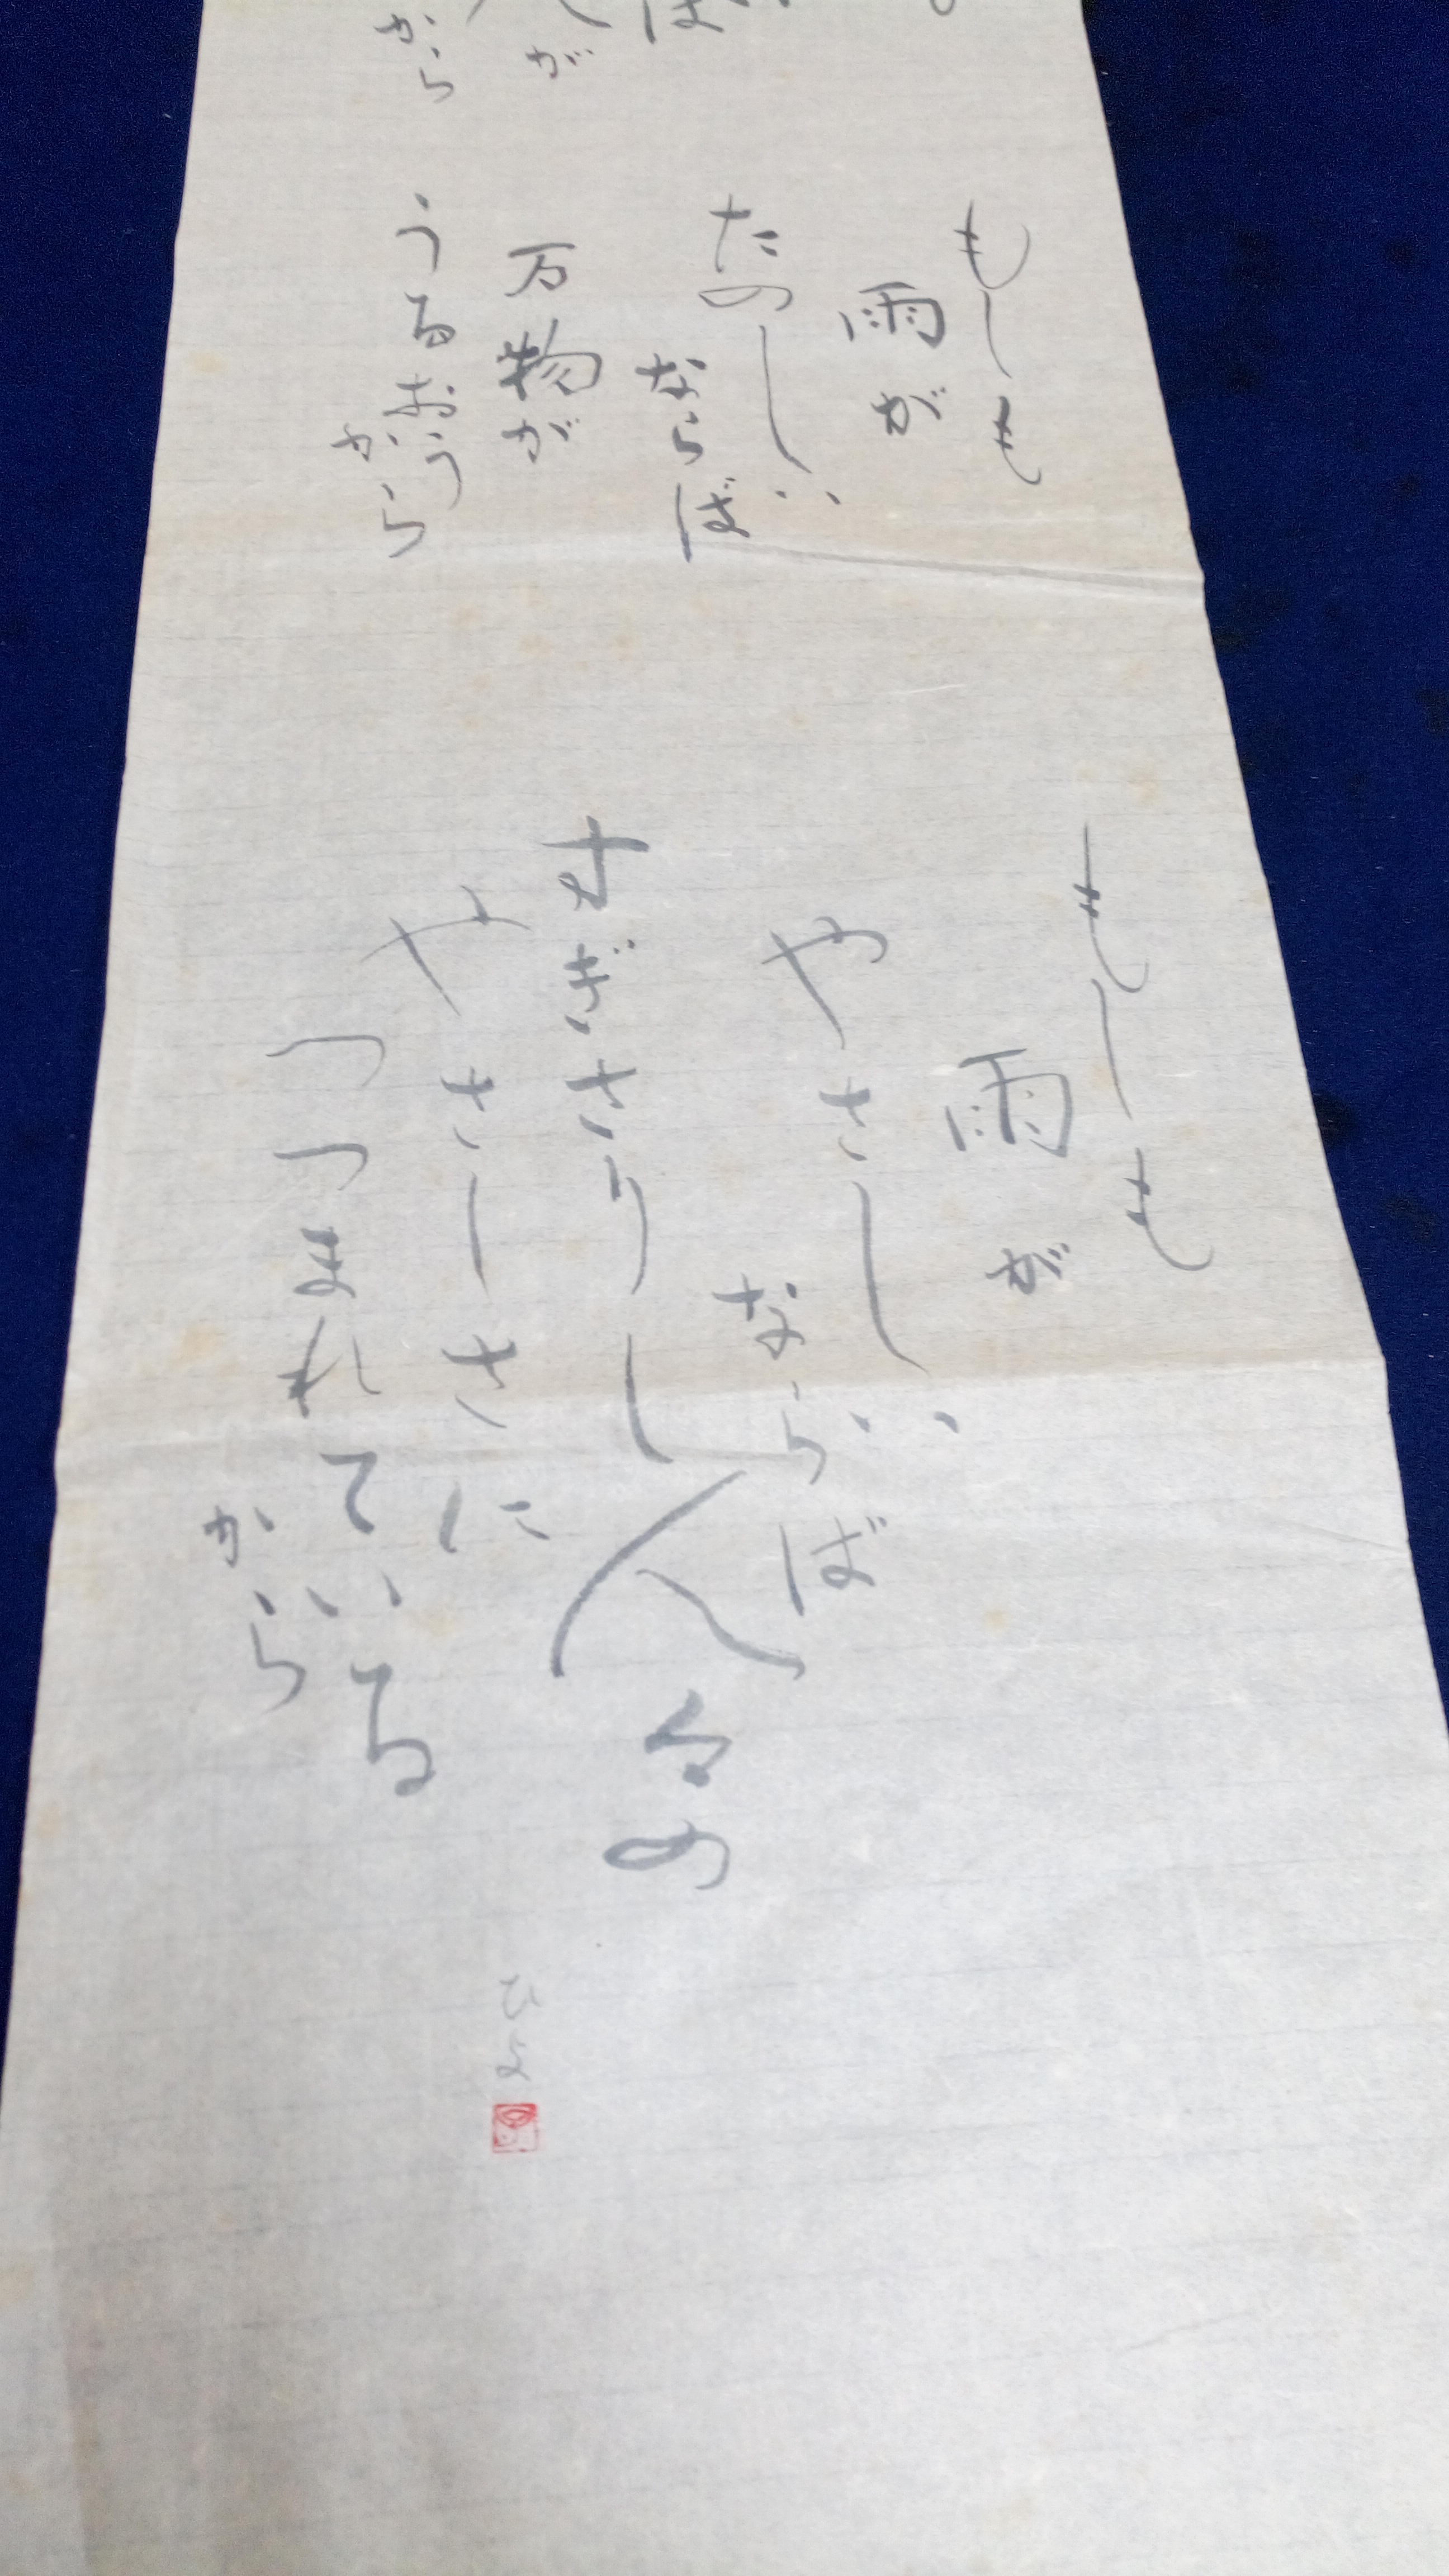 が
から
もしも
雨が
たのしい
ならば
万物が
うるおう
から
もしも
雨が
やさしい
ならば
すぎさりし人々の
やさしさに
つつまれている
から
ひよ